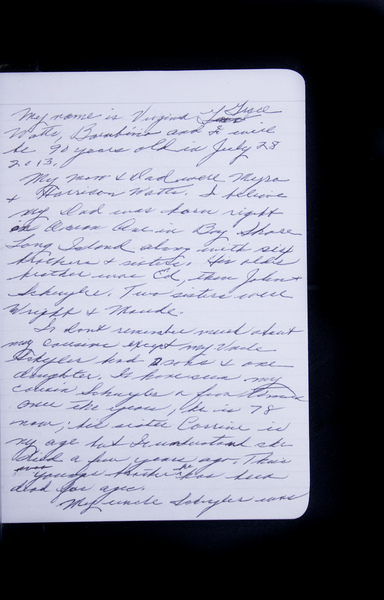 My name is Virginia Grace
Watts, Bambino and I will
be 90 years old in July 28
2013.
My mom & Dad were Myra
& Harrison Watts. I believe
my Dad was born right
on Ocean Ave in Bay Shore
Long Island along with six
brothers & sisters. His older
brother was Ed, then John &
Schuyler. Two sisters were
Wright & Maude.
I dont remember much about
my cousins except my Uncle
Schyler had 2 sons & one
daughter. I have seen my
cousin Schuyler a few times
over the years, he is 78
now, his sister Corrine is
my age but I understand she
died a few years ago. Their
younger brother has been
dead for ages.
My uncle Schyler was